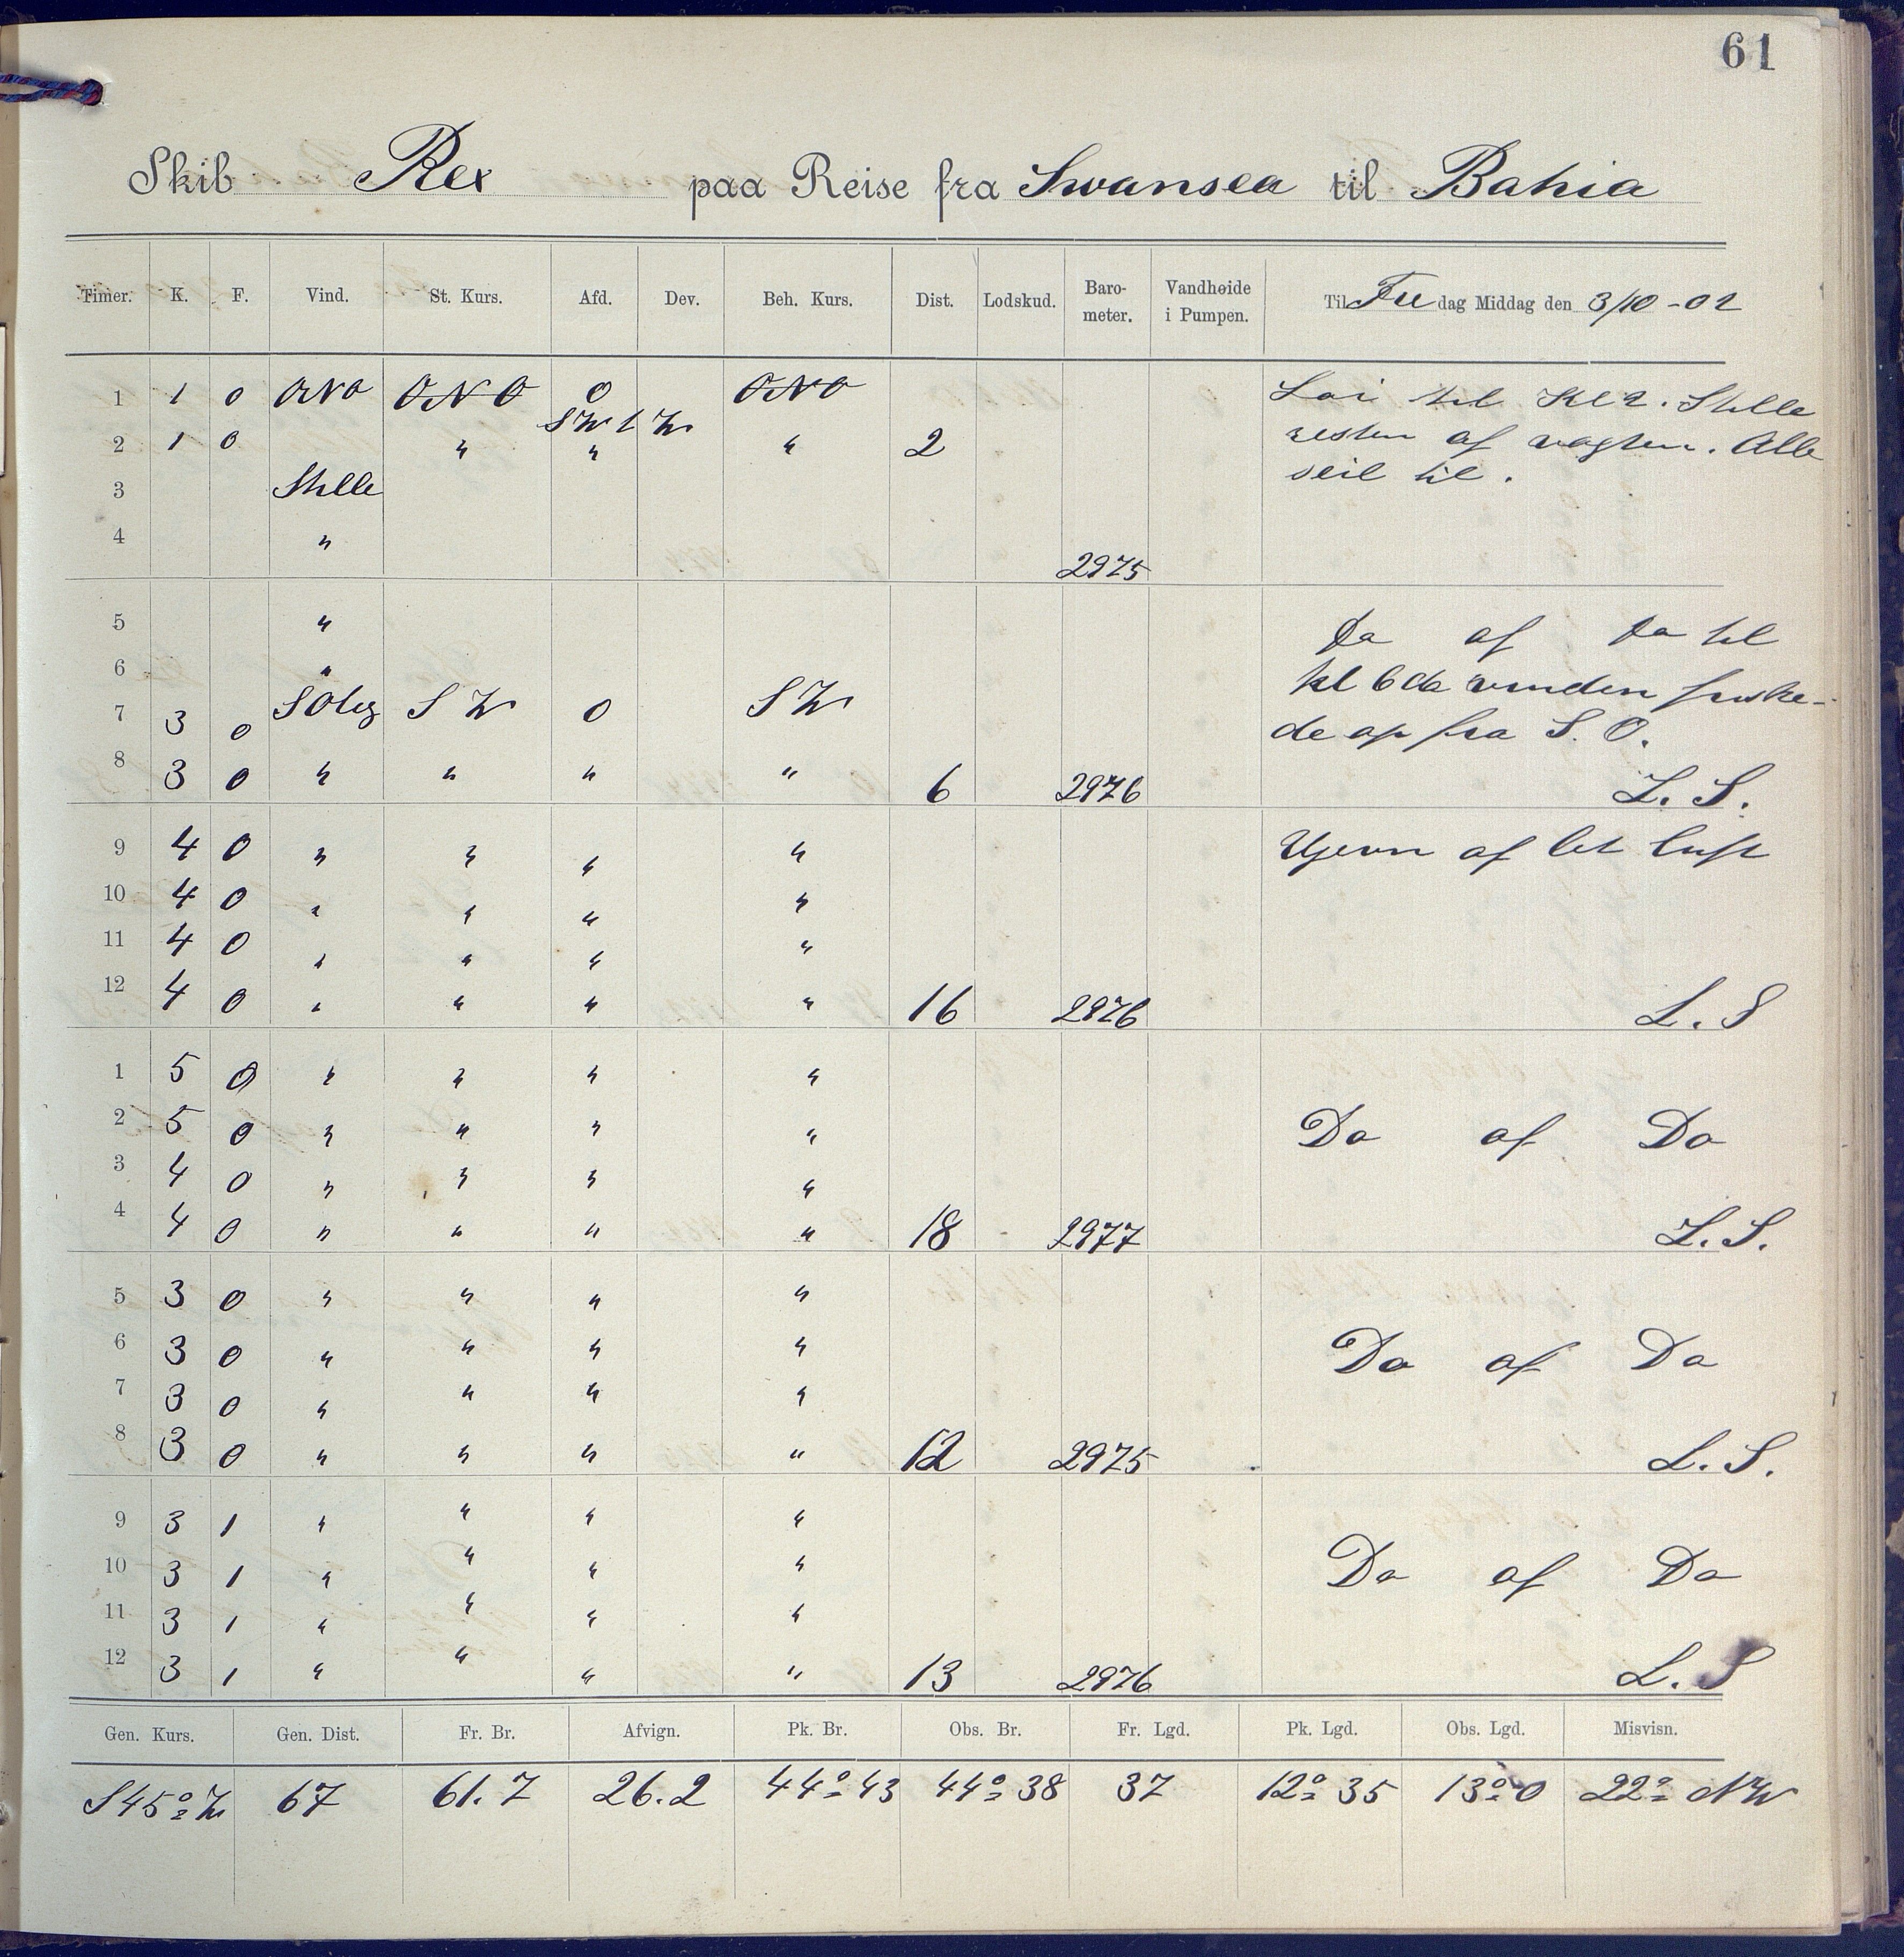 61
Skib Rex paa Reise fra Swansea til Bahia
Timer. K. F. Vind. St. Kurs. Afd. Dev. Beh. Kurs. Dist. Lodskud. Baro-meter. Vandhøide i Pumpen. Til Fre dag Middag den 3/10-02
1 1 0 ONO ONO 0 ONO Lai til Kl 2. Stille
SW t W
2 1 0 " " " 2 resten af vagten. Alle
3 Stille seil til.
4 " 2975
5 " Do af Do til
6 " kl 6 da vinden friske-
7 3 0 SOlig SW 0 SW de op fra S. O.
8 3 0 " " " " 6 2976 L. S.
9 4 0 " " " " Ujevn af let luft
10 4 0 " " " "
11 4 0 " " " "
12 4 0 " " " " 16 2976 L. S
1 5 0 " " " "
2 5 0 " " " " Do af Do
3 4 0 " " " "
4 4 0 " " " " 18 2977 L. S.
5 3 0 " " " "
6 3 0 " " " " Do af Do
7 3 0 " " " "
8 3 0 " " " " 12 2975 L. S.
9 3 1 " " " "
10 3 1 " " " " Do af Do
11 3 1 " " " "
12 3 1 " " " " 13 2976 L. S
Gen. Kurs. Gen. Dist. Fr. Br. Afvign. Pk. Br. Obs. Br. Fr. Lgd. Pk. Lgd. Obs. Lgd. Misvisn.
S45°W 67 61.7 26.2 44° 43 44° 38 37 12° 35 13° 0 22° NW